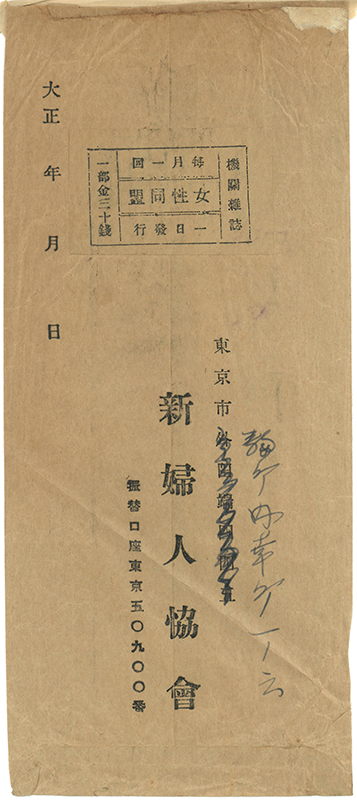 機關雜誌
每月一回
女性同盟
一日發行
一部金三十錢
大正 年 月 日
東京市
麹町內幸町一ノ六
新婦人協會
振替口座東京五〇九〇〇番